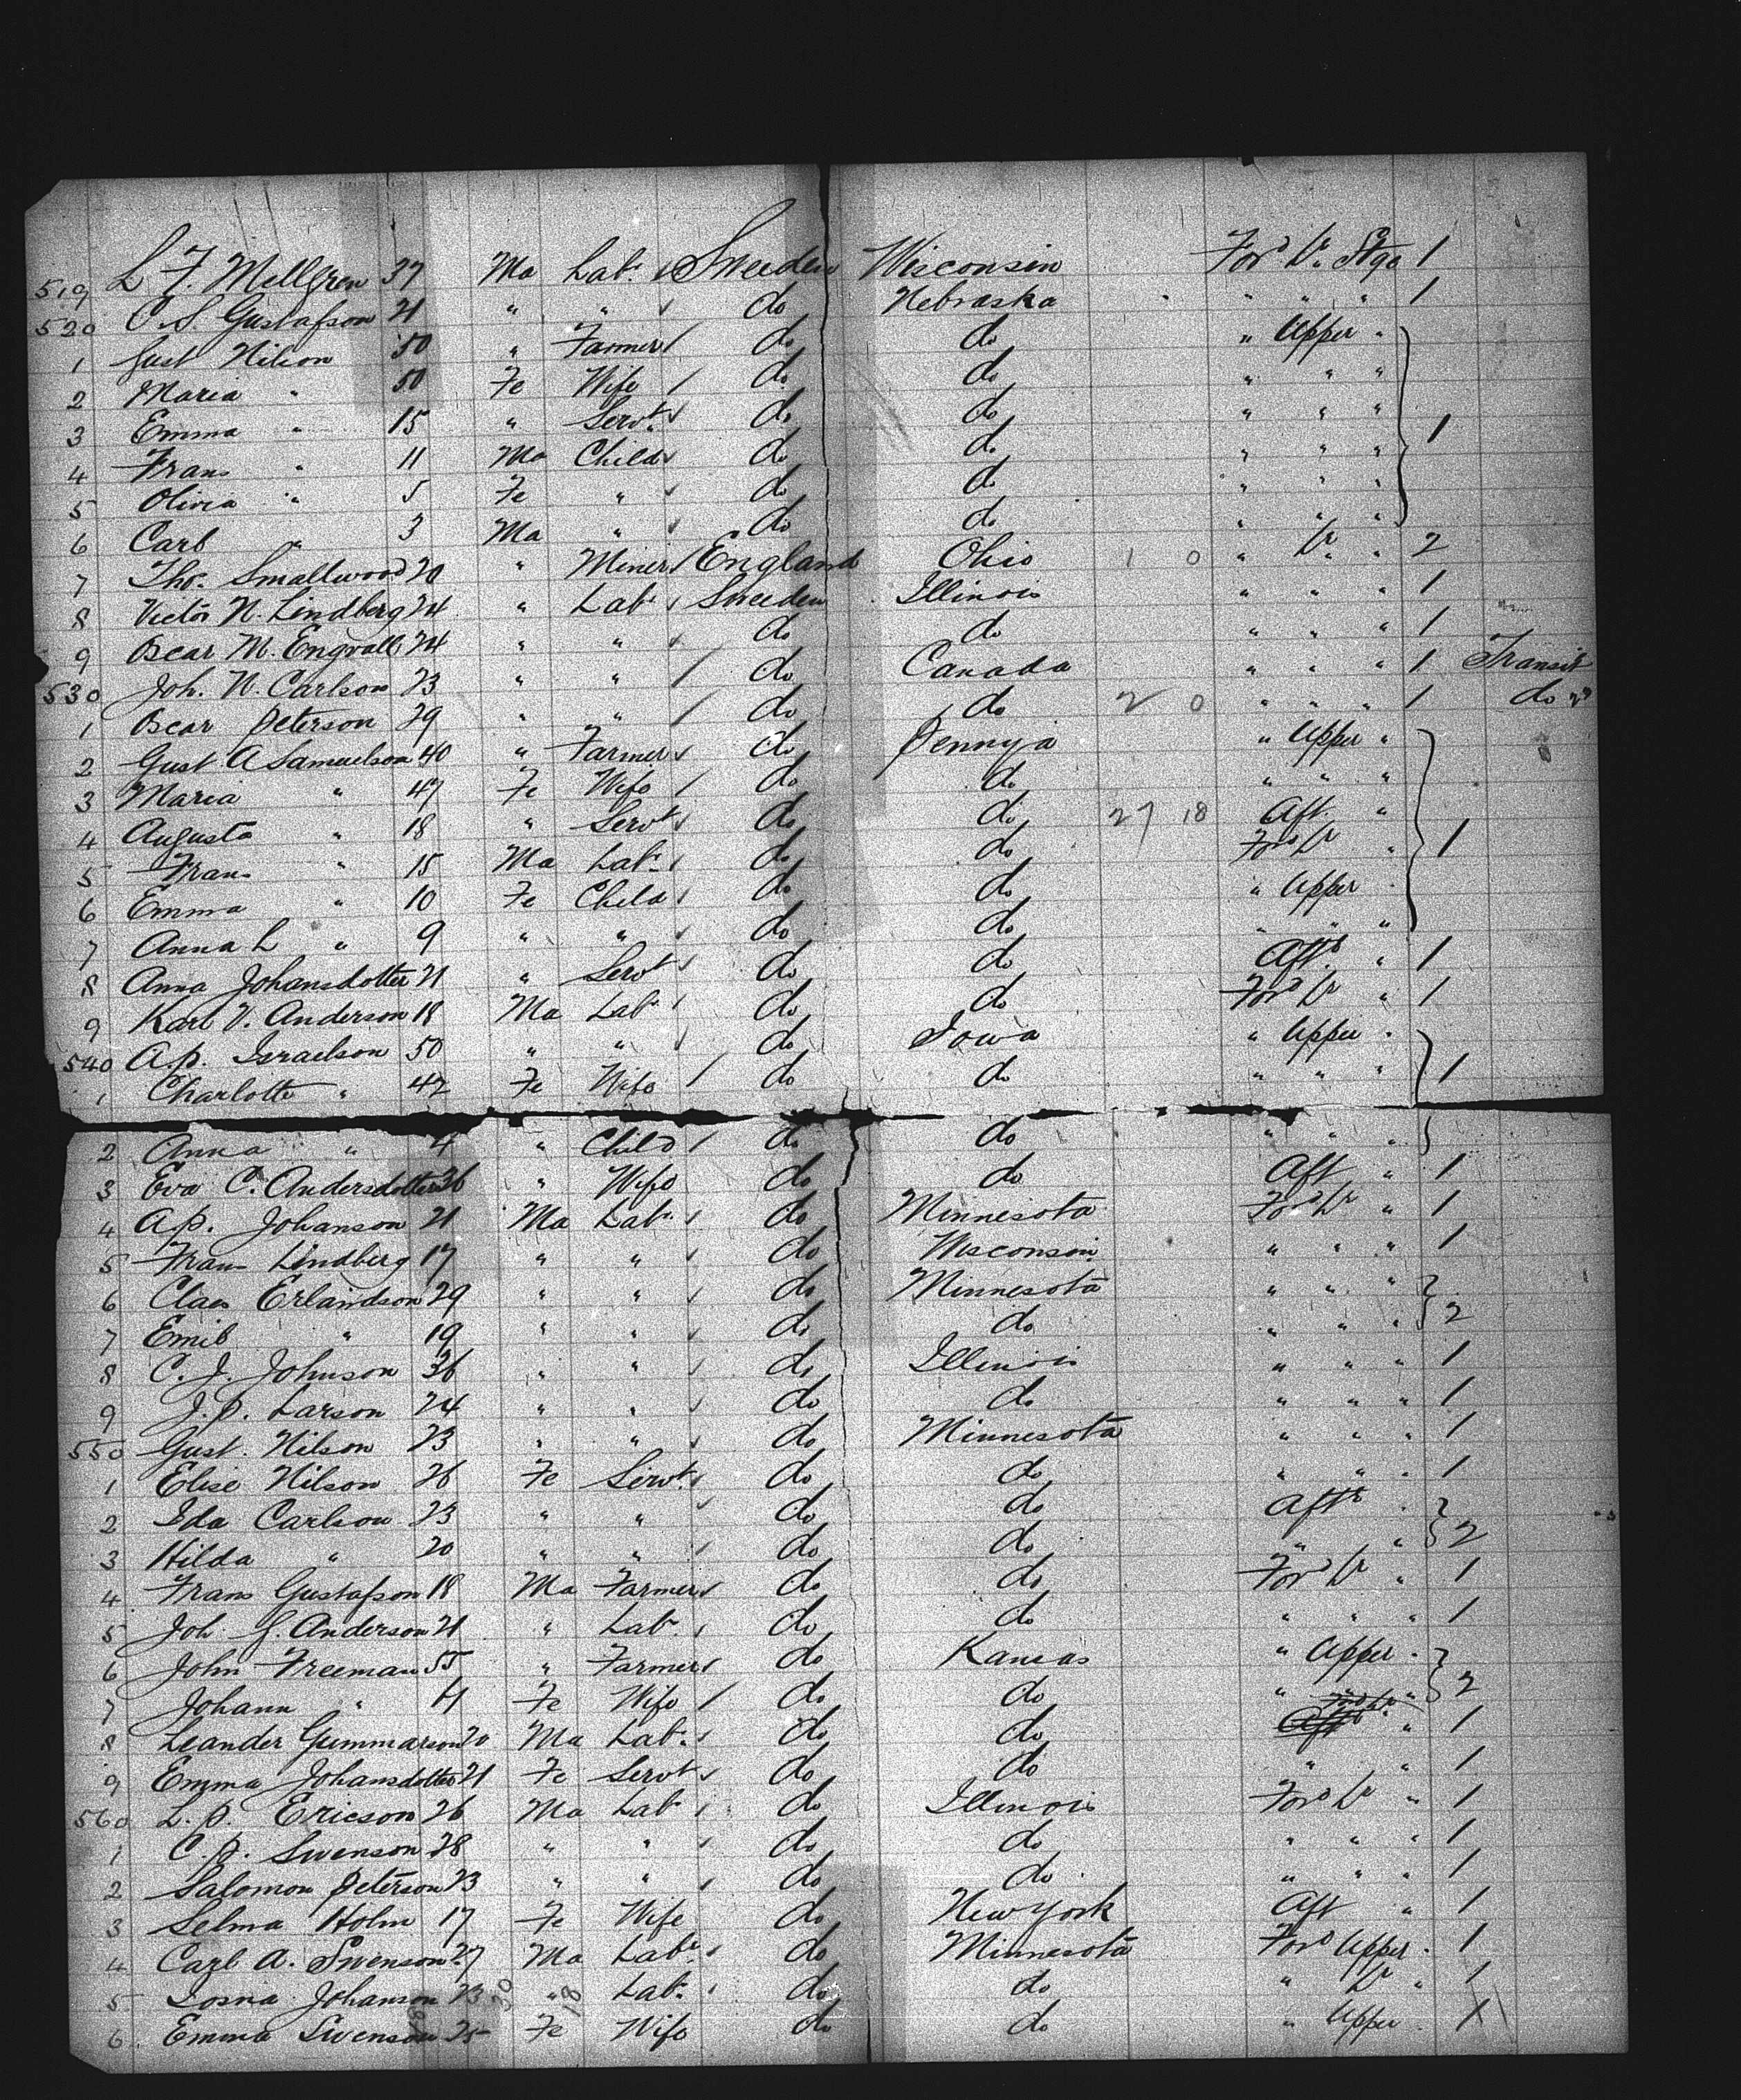 519 L F. Mellgren 37 Ma Labr Sweeden Wisconsin Ford Lr Stge 1
520 C. S. Gustafson 21 " " do Nebraska " " " 1
1 Gust Nilson 50 " Farmer do do " Upper "
2 Maria " 50 Fe Wife do do " " "
3 Emma " 15 " Servt do do " " " 1
4 Frans " 11 Ma Child do do " " "
5 Olivia " 5 Fe " do do " " "
6 Carl " 3 Ma " do do " " "
7 Tho. Smallwood 20 " Miner England Ohio 1 0 " Lr " 2
8 Victor N. Lindberg 24 " Labr Sweeden Illinois " " " 1
9 Oscar M. Engvall 24 " " do do " " " 1
530 Joh. N. Carlson 23 " " do Canada " " " 1 Transit
1 Oscar Peterson 29 " " do do 2 0 " " " 1 do
2 Gust A Samuelson 40 " Farmer do Pennya " Upper "
3 Maria " 47 Fe Wife do do " " "
4 Augusta " 18 " Servt do do 27 18 Aft. "
5 Frans " 15 Ma Labr do do Ford Lr " 1
6 Emma " 10 Fe Child do do " Upper "
7 Anna L " 9 " " do do " " "
8 Anna Johansdotter 21 " Servt do do Aft " 1
9 Karl V. Anderson 18 Ma Labr do do Ford Lr " 1
540 A.P. Israelson 50 " " do Iowa " Upper "
1 Charlotte " 42 Fe Wife do do " " " 1
2 Anna " 4 " Child do do " " "
3 Eva C. Andersdotter 36 " Wife do do Aft " 1
4 A.P. Johanson 21 Ma Labr do Minnesota Ford Lr " 1
5 Frans Lindberg 17 " " do Wisconsin " " " 1
6 Claes Erlandson 29 " " do Minnesota " " "
7 Emil " 19 " " do do " " " 2
8 C. J. Johnson 36 " " do Illinois " " " 1
9 J.P. Larson 24 " " do do " " " 1
550 Gust. Nilson 23 " " do Minnesota " " " 1
1 Elise Nilson 26 Fe Servt do do " " " 1
2 Ida Carlson 23 " " do do Aft "
3 Hilda " 20 " " do do " " 2
4 Frans Gustafson 18 Ma Farmer do do Ford Lr " 1
5 Joh. G. Anderson 21 " Labr do do " " " 1
6 John Freeman 55 " Farmer do Kansas " Upper "
7 Johann " 41 Fe Wife do do " " " 2
8 Leander Gummarson 20 Ma Labr do do Ford Lr " 1
9 Emma Johansdotter 21 Fe Servt do do " " 1
560 L.P. Ericson 26 Ma Labr do Illinois Ford Lr " 1
1 C.P. Swenson 28 " " do do " " " 1
2 Salomon Peterson 23 " " do do " " " 1
3 Selma Holm 17 Fe Wife do New York Aft " 1
4 Carl A. Swenson 27 Ma Labr do Minnesota Ford Upper " 1
5 Johanson 23 " Labr do do " Lr " 1
6 Emma Swenson 25 Fe Wife do do " Upper "